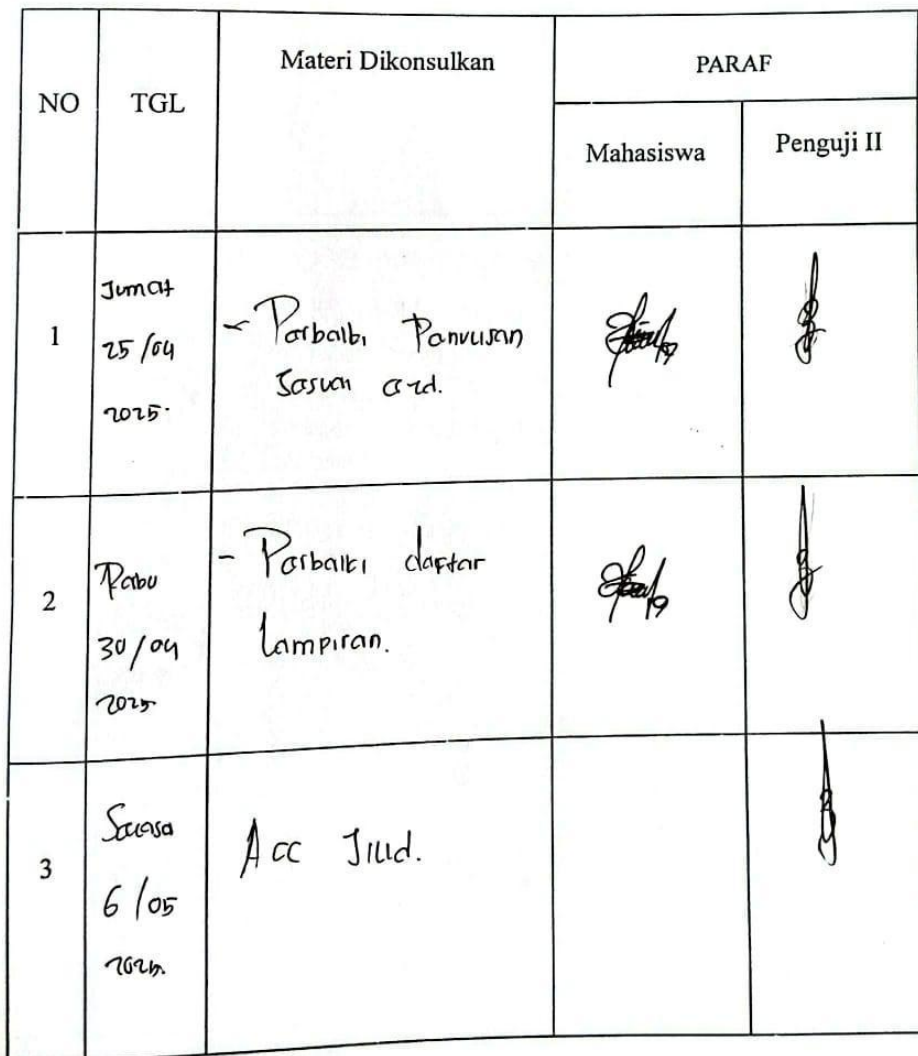 NO
TGL
Materi Dikonsulkan
PARAF
Mahasiswa
Penguji II
1
Jumat
25/04
2025.
- Perbaiki Penulisan
Sesuai
2
Rabu
30/04
2025
- Perbaiki daftar
Lampiran.
3
Selasa
6/05
2025.
Acc Jilid.